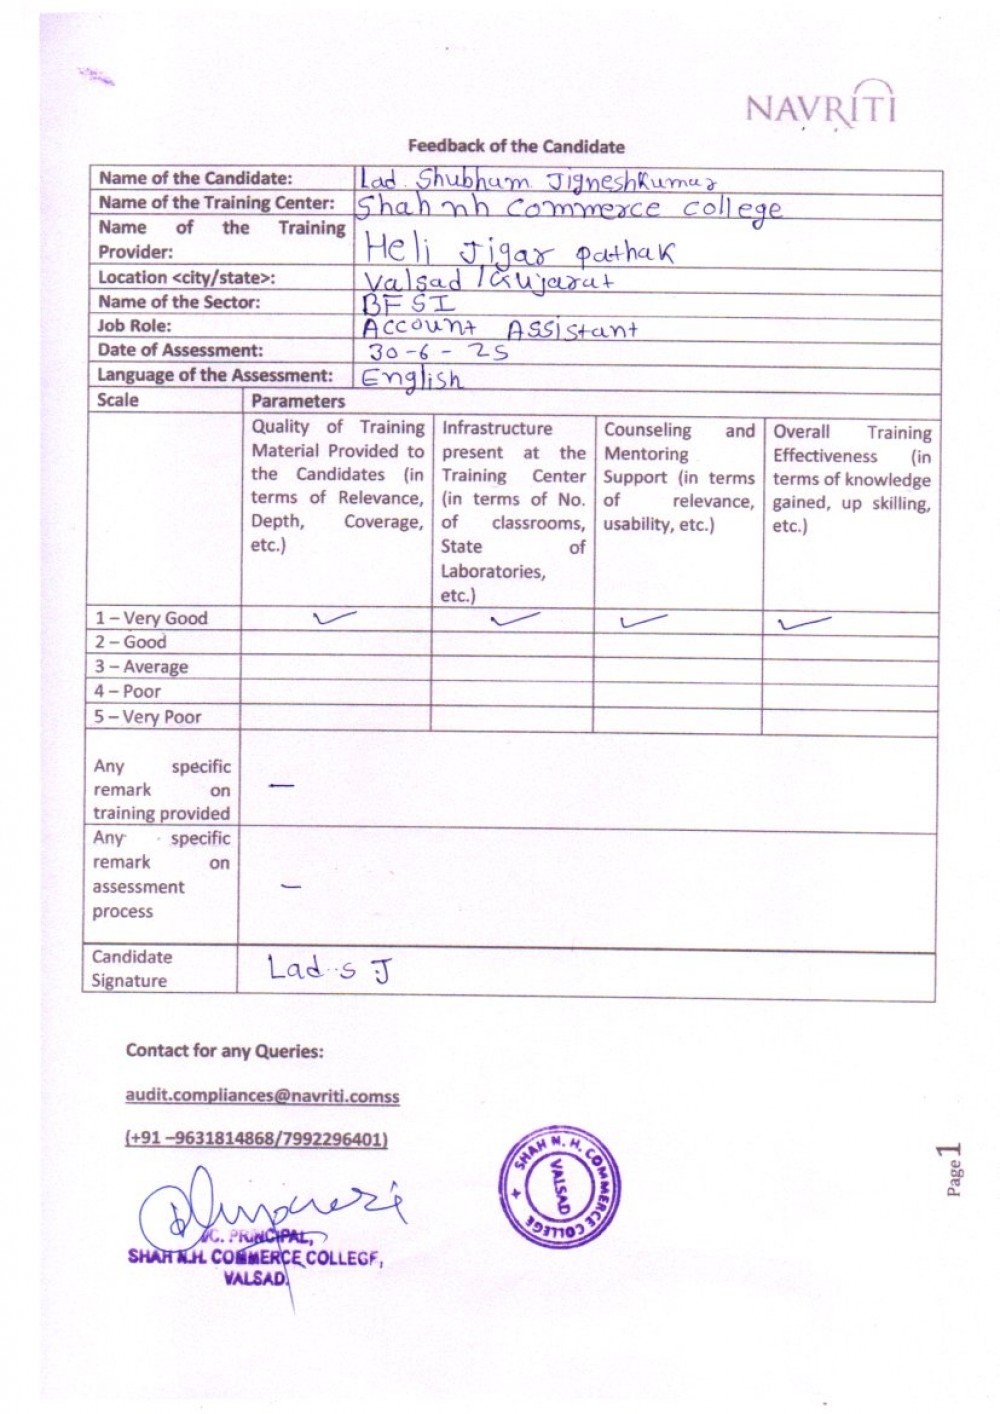 NAVRITI
Feedback of the Candidate
Name of the Candidate: Lad Shubham Jigneshkumar
Name of the Training Center: Shah nh commerce college
Name of the Training
Provider: Heli Jigar pathak
Location <city/state>: Valsad / Gujarat
Name of the Sector: BFSI
Job Role: Account Assistant
Date of Assessment: 30-6-25
Language of the Assessment: English
Scale Parameters
Quality of Training
Material Provided to
the Candidates (in
terms of Relevance,
Depth, Coverage,
etc.)
Infrastructure
present at the
Training Center
(in terms of No.
of classrooms,
State of
Laboratories,
etc.)
Counseling and
Mentoring
Support (in terms
of relevance,
usability, etc.)
Overall Training
Effectiveness (in
terms of knowledge
gained, up skilling,
etc.)
1 – Very Good ✓ ✓ ✓ ✓
2 – Good
3 – Average
4 – Poor
5 – Very Poor
Any specific
remark on
training provided —
Any specific
remark on
assessment
process —
Candidate
Signature Lad S J
Contact for any Queries:
audit.compliances@navriti.comss
(+91 –9631814868/7992296401)
SHAH N. H. COMMERCE COLLEGE
VALSAD
Page 1
PRINCIPAL,
SHAH N.H. COMMERCE COLLEGE,
VALSAD.